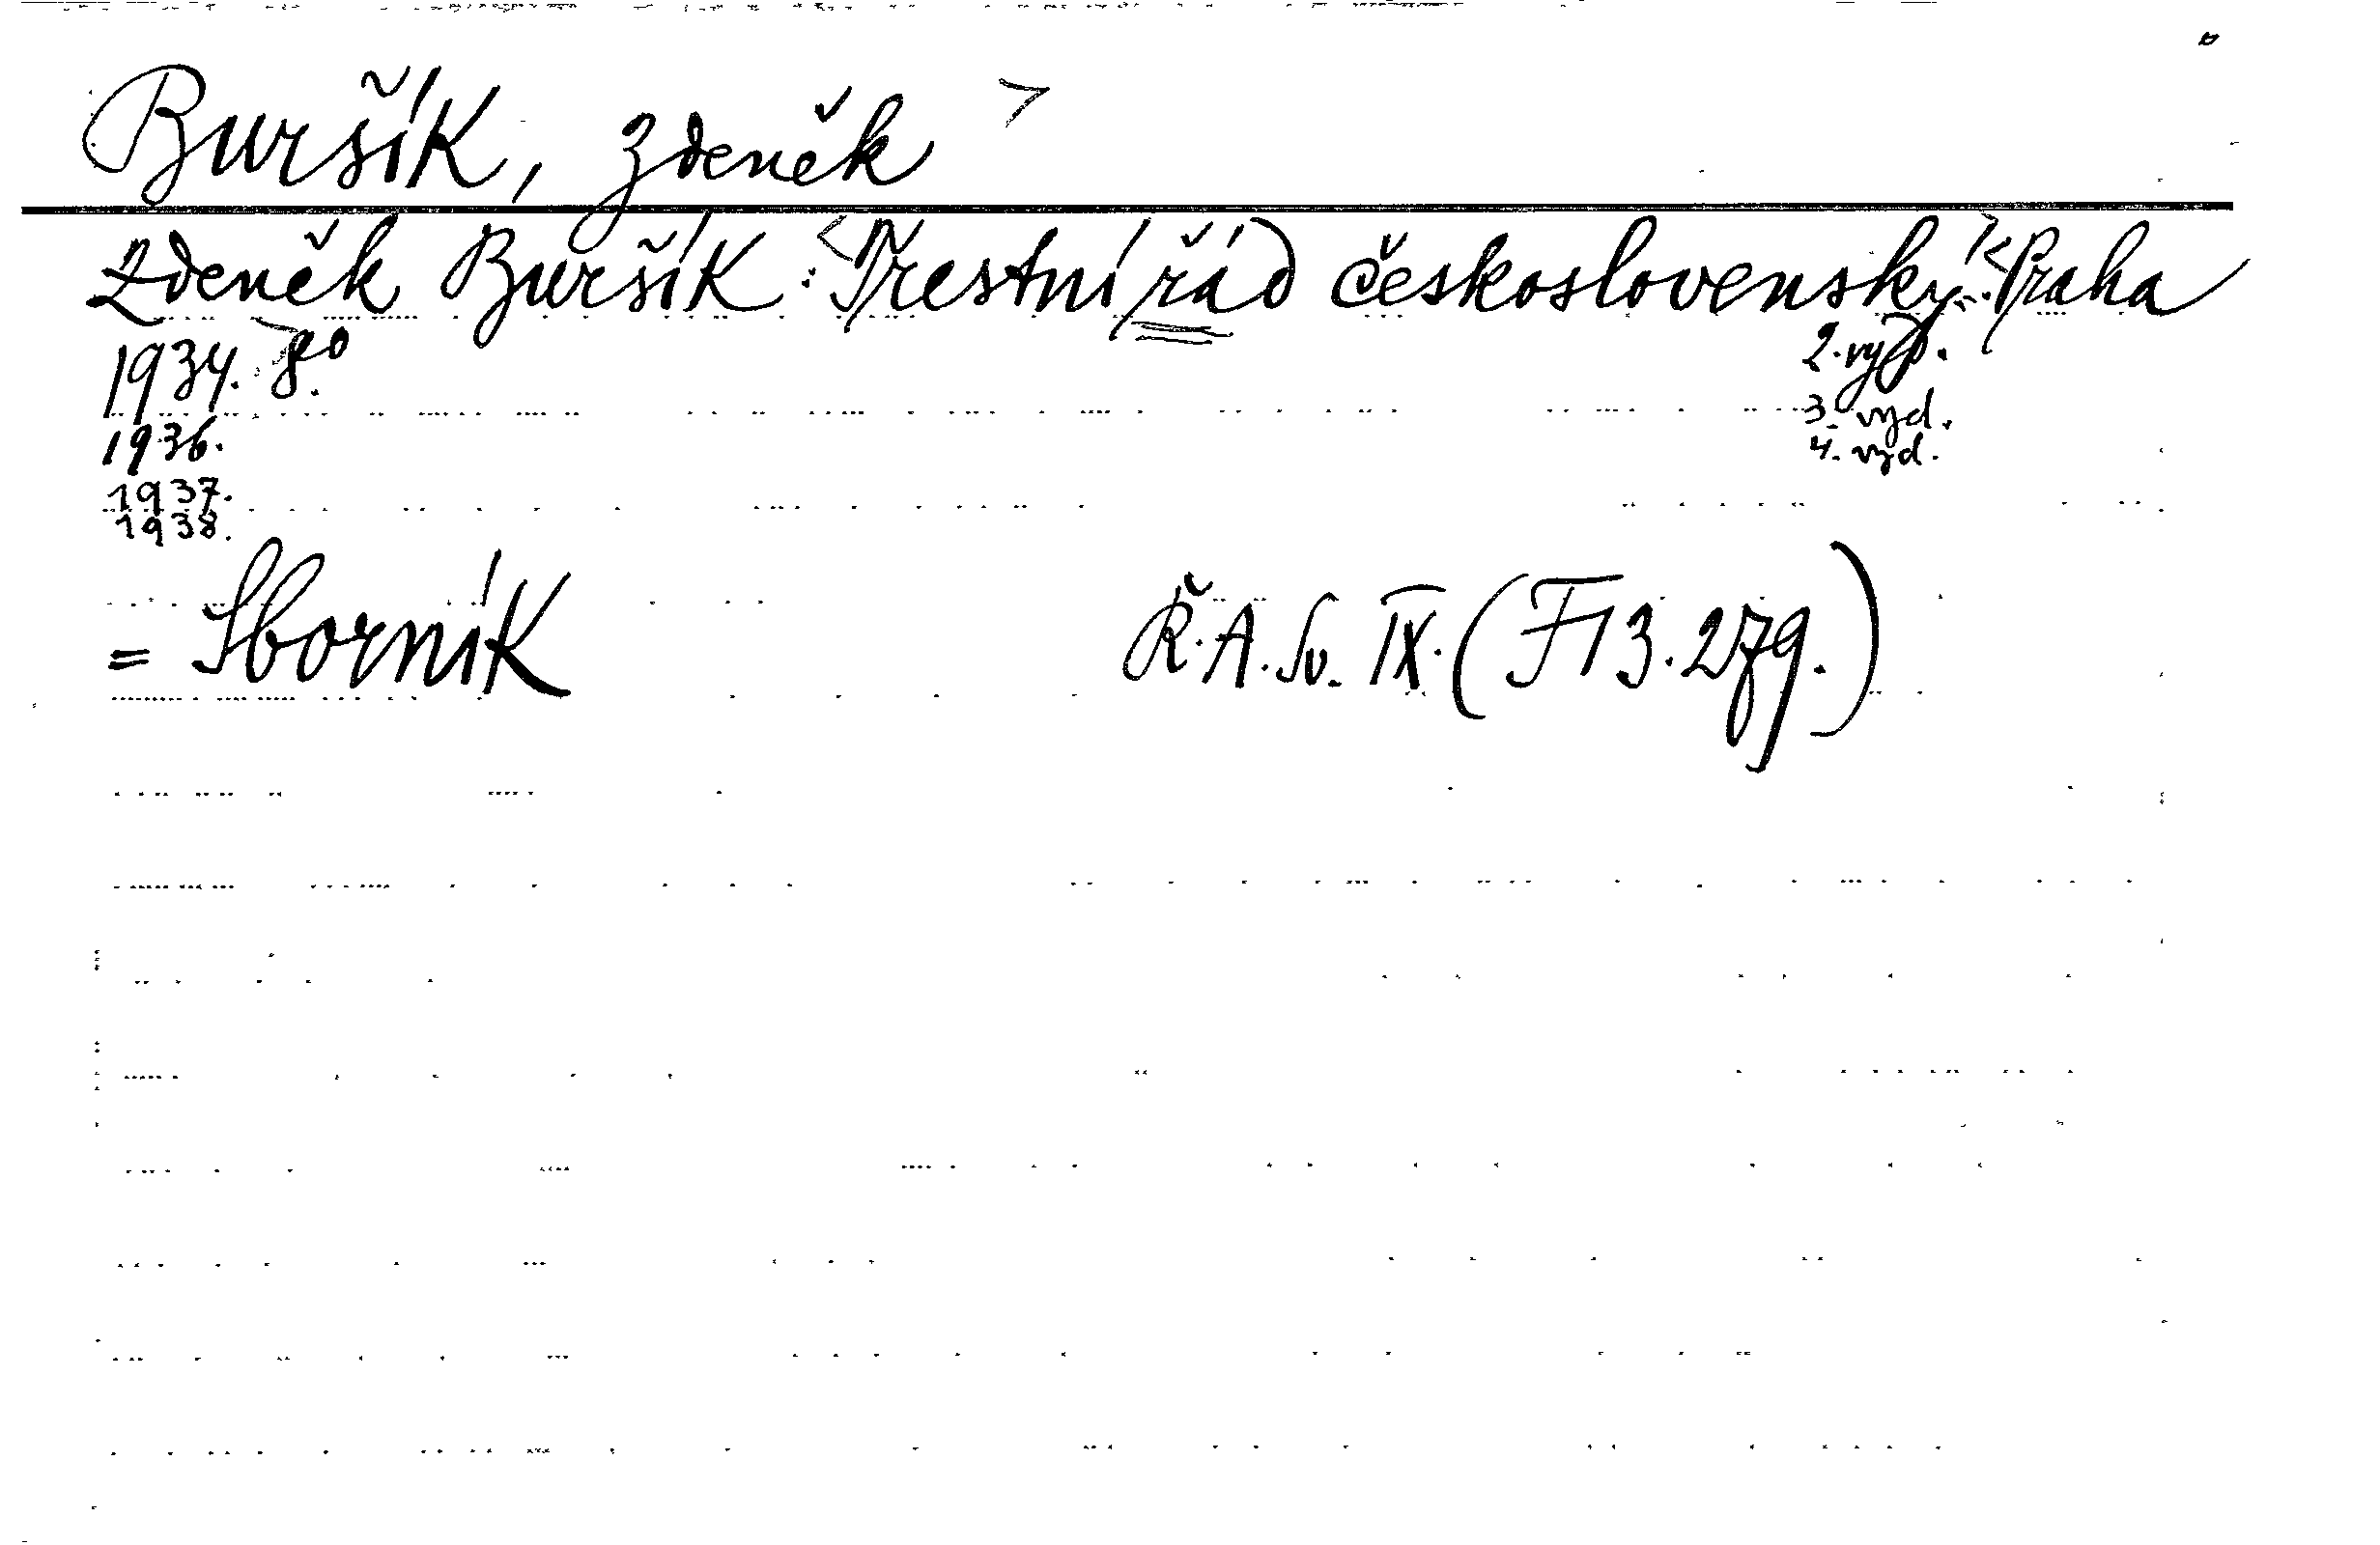 Buršík, Zdeněk
Zdeněk Buršík: Trestní řád československý. Praha
1934. 8º.
2. vyd.
1936.
3. vyd.
4. vyd.
1937.
1938.
= Sborník Ř. A. Sv. IX. (F 13.279.)